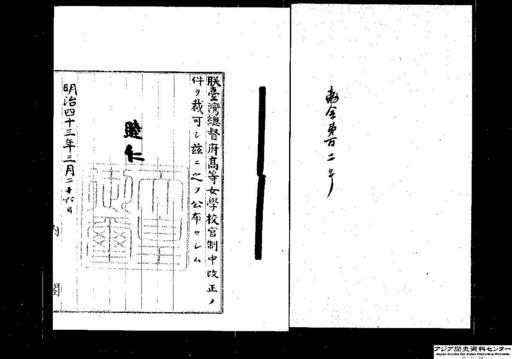 勅令第百二号
朕臺灣總督府高等女學校官制中改正ノ
件ヲ裁可シ茲ニ之ヲ公布セシム
睦仁
明治四十三年三月二十六日
内閣
アジア歴史資料センター
Japan Center for Asian Historical Records